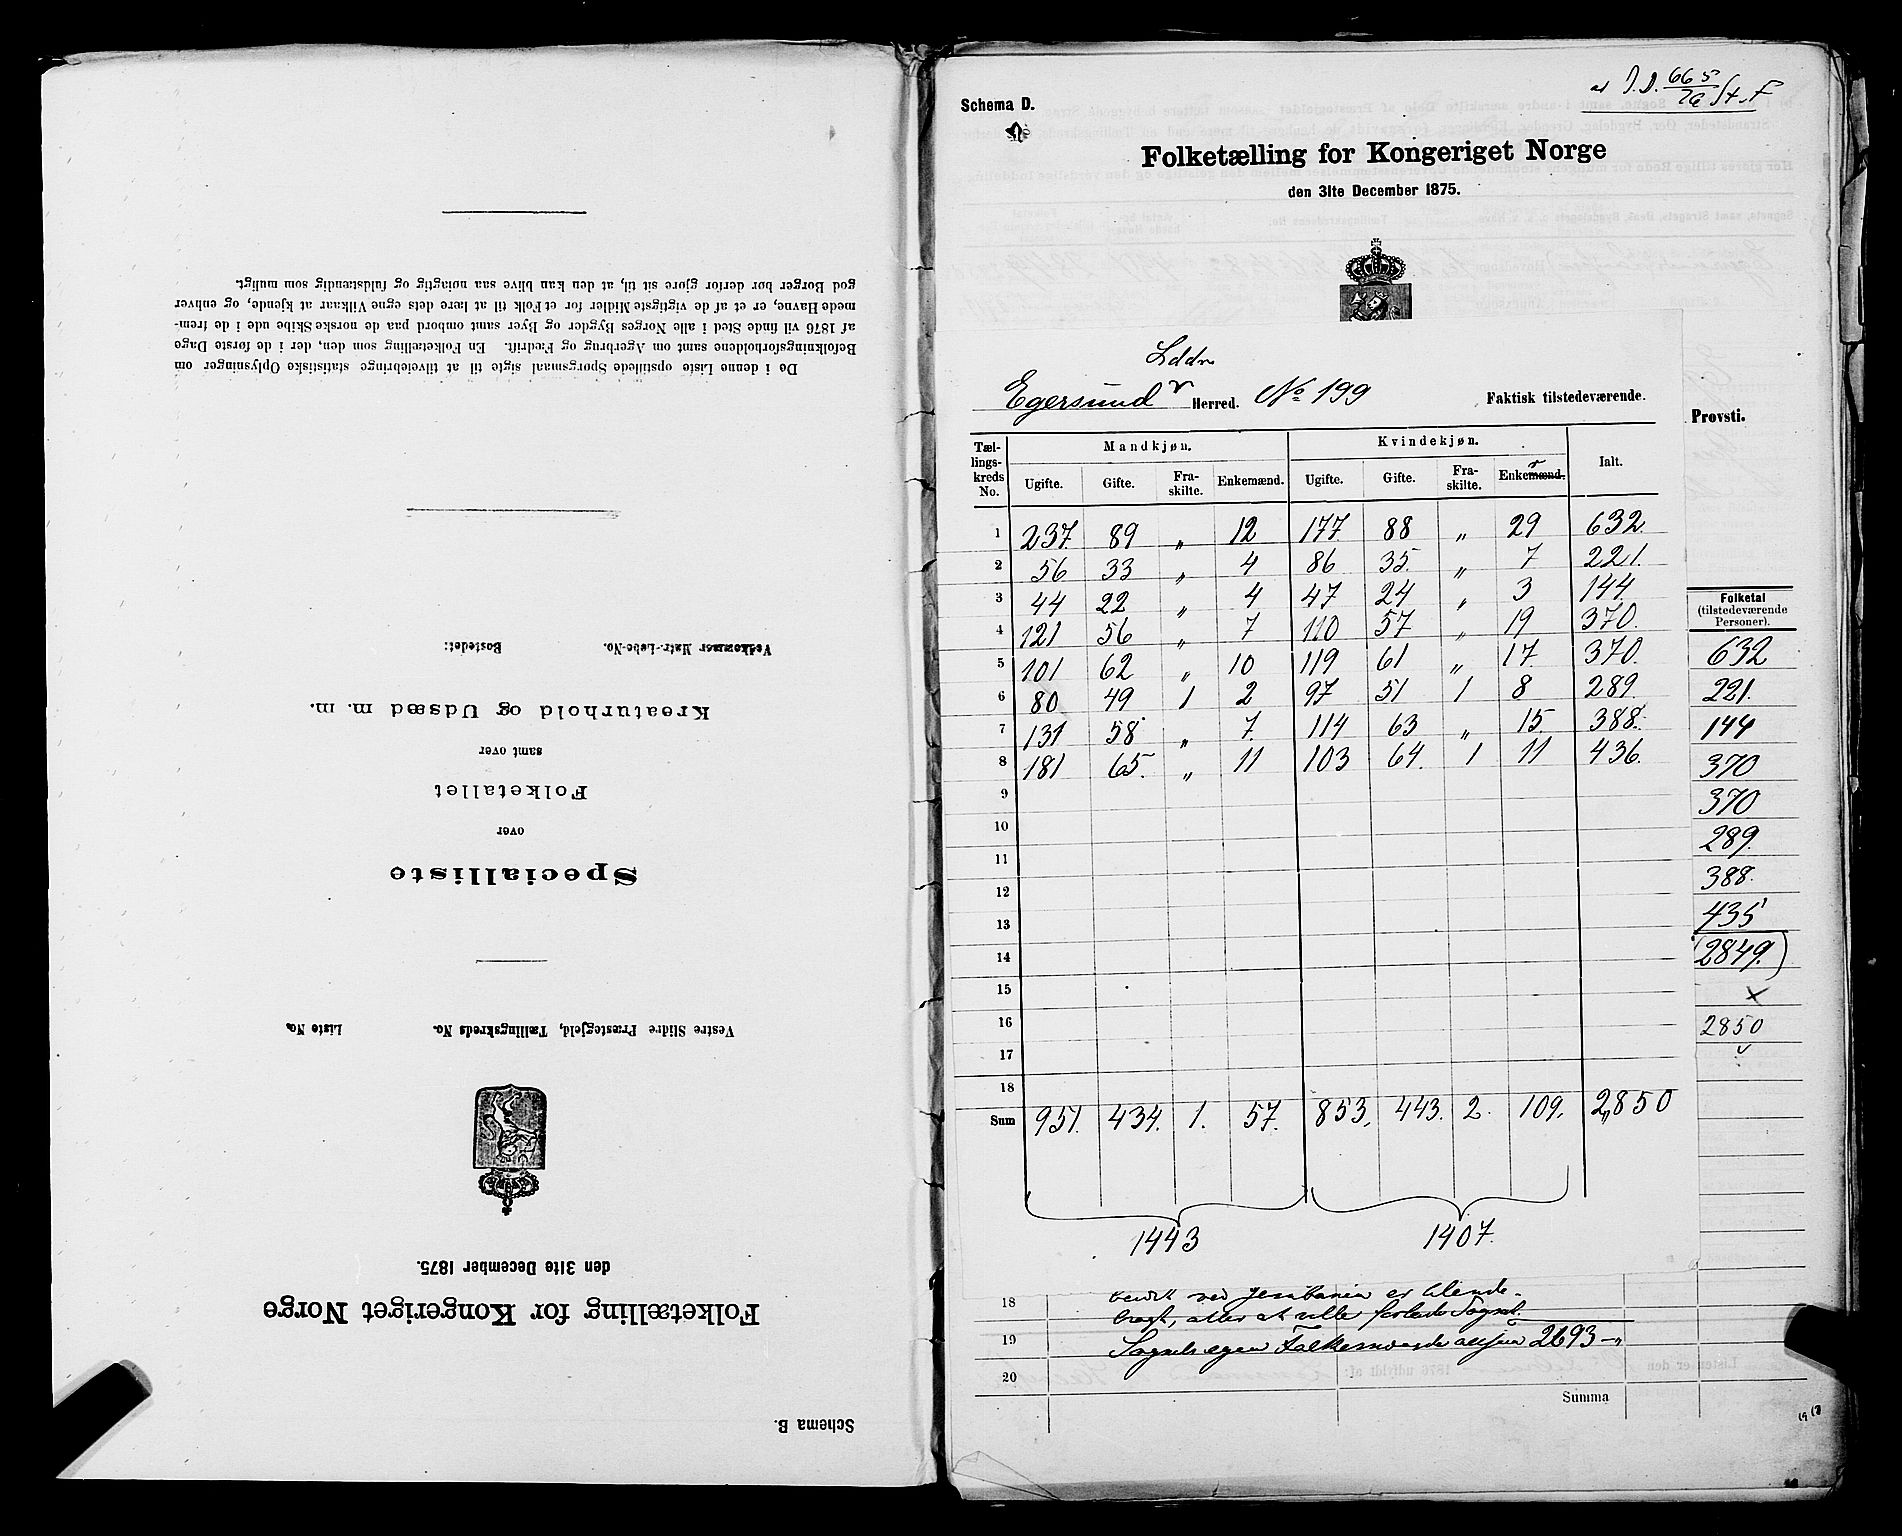 Schema B.
Folketælling for Kongeriget Norge
den 31te December 1875.
Vestre Slidre Præstegjeld, Tællingskreds No. Liste No.
Specialliste
over
Folketallet
samt over
Kreaturhold og Udsæd m. m.
Vedkommer Matr.-Løbe-No. Bostedet:
Da i denne Liste opstillede Spørgsmaal sigte til at tilveiebringe statistiske Oplysninger om
Befolkningsforholdene samt om Agerbrug og Fædrift. En Folketælling som den, der i de første Dage
af 1876 vil finde Sted i alle Norges Bygder og Byer samt ombord paa de norske Skibe ude i de frem-
mede Havne, er et af de vigtigste Midler for et Folk til at lære dets egne Vilkaar at kjende, og enhver
god Borger bør derfor gjøre sit til, at den kan blive saa nøiagtig og fuldstændig som muligt.
Schema D.
J. D. 665/76 St. F
Folketælling for Kongeriget Norge
den 31te December 1875.
Lddr
Egersund Herred. No 199 Faktisk tilstedeværende.
Provsti.
Tæl-lings-kreds No. Mandkjøn. Kvindekjøn. Ialt.
Ugifte. Gifte. Fra-skilte. Enkemænd. Ugifte. Gifte. Fra-skilte. Enkemænd.
1 237. 89 „ 12 177 88 „ 29 632.
2 56 33 „ 4 86 35. „ 7 221.
3 44 22 „ 4 47 24 „ 3 144.
4 121 56 „ 7 110 57 „ 19 370.
5 101 62 „ 10 119 61 „ 17. 370.
6 80 49 1 2 97 51 1 8 289.
7 131 58 „ 7. 114 63 „ 15. 388.
8 181 65. „ 11 103 64. 1 11 436.
9
10
11
12
13
14
15
16
17
18
Sum 951. 434. 1. 57. 853, 443. 2. 109. 2,850
1443 1407.
Folketal
(tilstedeværende
Personer).
632
221.
144
370
370
289.
388.
435
(2849.)
×
2850
18 ved er
19 Folkemængde 2693
20
Summa